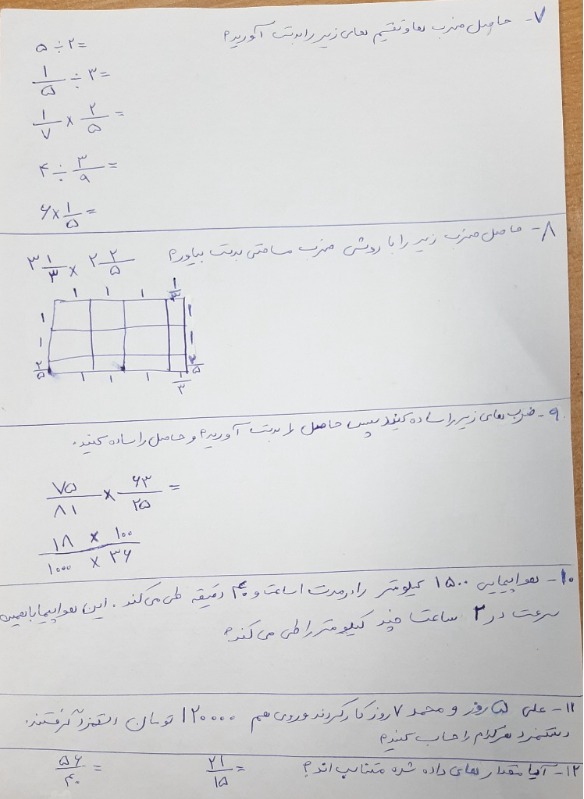 ۷- حاصل ضرب ها و تقسیم های زیر را بدست آورید؟
۵ ÷ ۲ =
۱/۵ ÷ ۳ =
۱/۷ × ۲/۵ =
۴ ÷ ۳/۹ =
۶ × ۱/۵ =
۸- حاصل ضرب زیر را با روش ضرب مساحتی بدست بیاورید؟
۳ ۱/۳ × ۲ ۲/۵
۱ ۱ ۱ ۱/۳
۱ ۱
۱ ۱
۲/۵ ۲/۵
۱ ۱ ۱ ۱/۳
۹- ضرب های زیر را ساده کنید سپس حاصل را بدست آورید؟ و حاصل را ساده کنید.
۷۵/۸۱ × ۶۳/۲۵ =
۱۸ × ۱۰۰
۱۰۰۰ × ۳۶
۱۰- هواپیمایی ۱۵۰۰ کیلومتر را در مدت ۱ ساعت و ۴۰ دقیقه طی می کند. این هواپیما با همین
سرعت در ۲ ساعت چند کیلومتر را طی می کند؟
۱۱- علی ۵ روز و محمد ۷ روز کار کردند و روی هم ۱۲۰۰۰۰ تومان دستمزد گرفتند.
دستمزد هرکدام را حساب کنید؟
۱۲- آیا مقدار های داده شده متناسب اند؟ ۲۱/۱۵ = ۵۶/۴۰ =